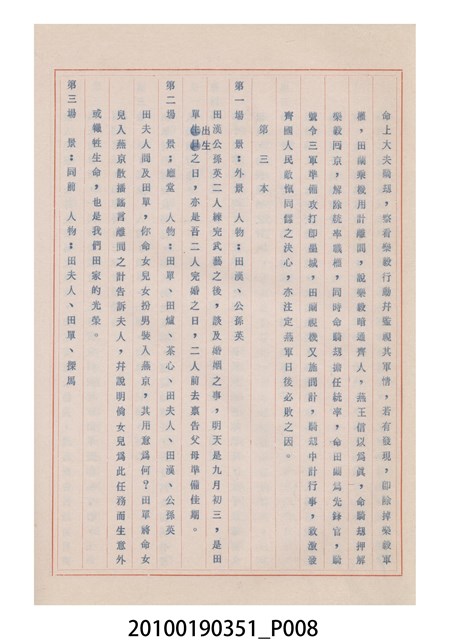 命上大夫騎刼，察看樂毅行動幷監視其軍情，若有發現，卽除掉樂毅軍
權，田單樂毅用計離間，說樂毅暗通齊人，燕王信以爲眞，命騎刼押解
樂毅囘京，解除統率職權，同時命騎刼擔任統率，命田單爲先鋒官，騎
號令三軍準備攻打卽墨城，田單視機又施間計，騎刼中計行事，致激發
齊國人民敵愾同仇之決心，亦注定燕軍日後必敗之因。
第三本
第一場　景：外景　人物：田漢、公孫英
田漢公孫英二人練完武藝之後，談及婚姻之事，明天是九月初三，是田
單出生之日，亦是吾二人完婚之日，二人前去禀告父母準備佳期。
第二場　景：廳堂　人物：田單、田爐、茶心、田夫人、田漢、公孫英
田夫人問及田單，你命女兒女扮男裝入燕京，其用意爲何？田單將命女
兒入燕京散播謠言離間之計告訴夫人，幷說明倘女兒爲此任務而生意外
或犧牲生命，也是我們田家的光榮。
第三場　景：同前　人物：田夫人、田單、探馬
20100190351_P008